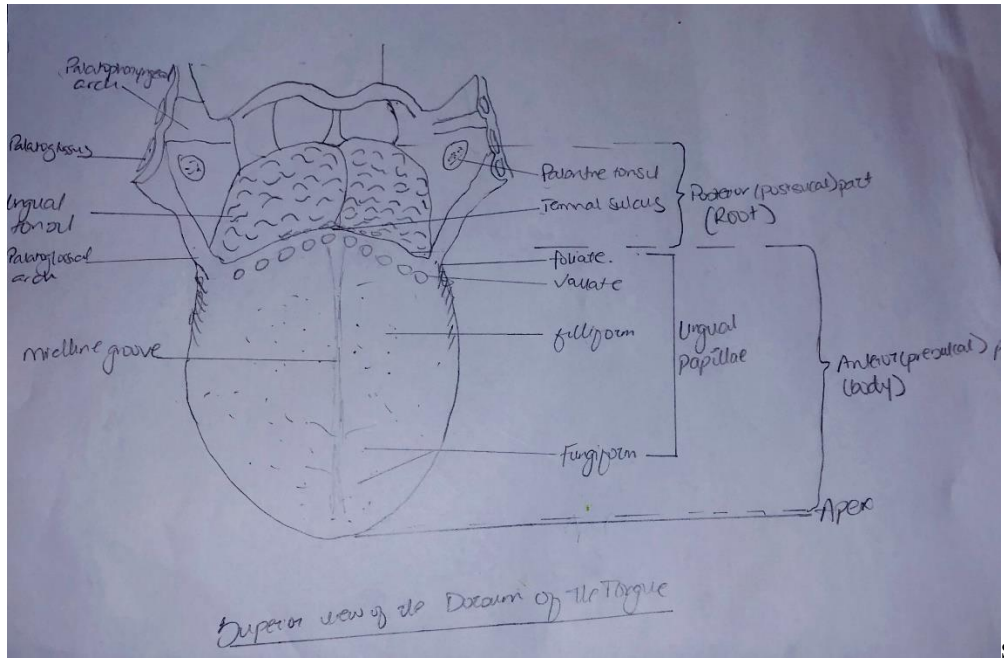 Palatopharyngeal
arch
Palatoglossus
Lingual
tonsil
Palatoglossal
arch
midline groove
Palantine tonsil
Terminal sulcus
foliate.
Vallate
filliform
Fungiform
Lingual
Papillae
Posterior (postsulcal) part
(Root)
Anterior (presulcal) p
(body)
Apex
Superior view of the Dorsum of the Tongue